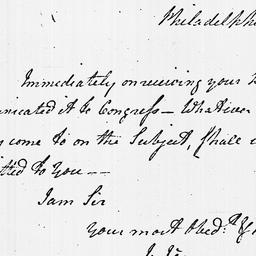 Philadelphi
Immediately on receiving your
unicated it to Congress — Whatever
come to on the Subject, shall
tted to You —
I am Sir
your most Obed.t